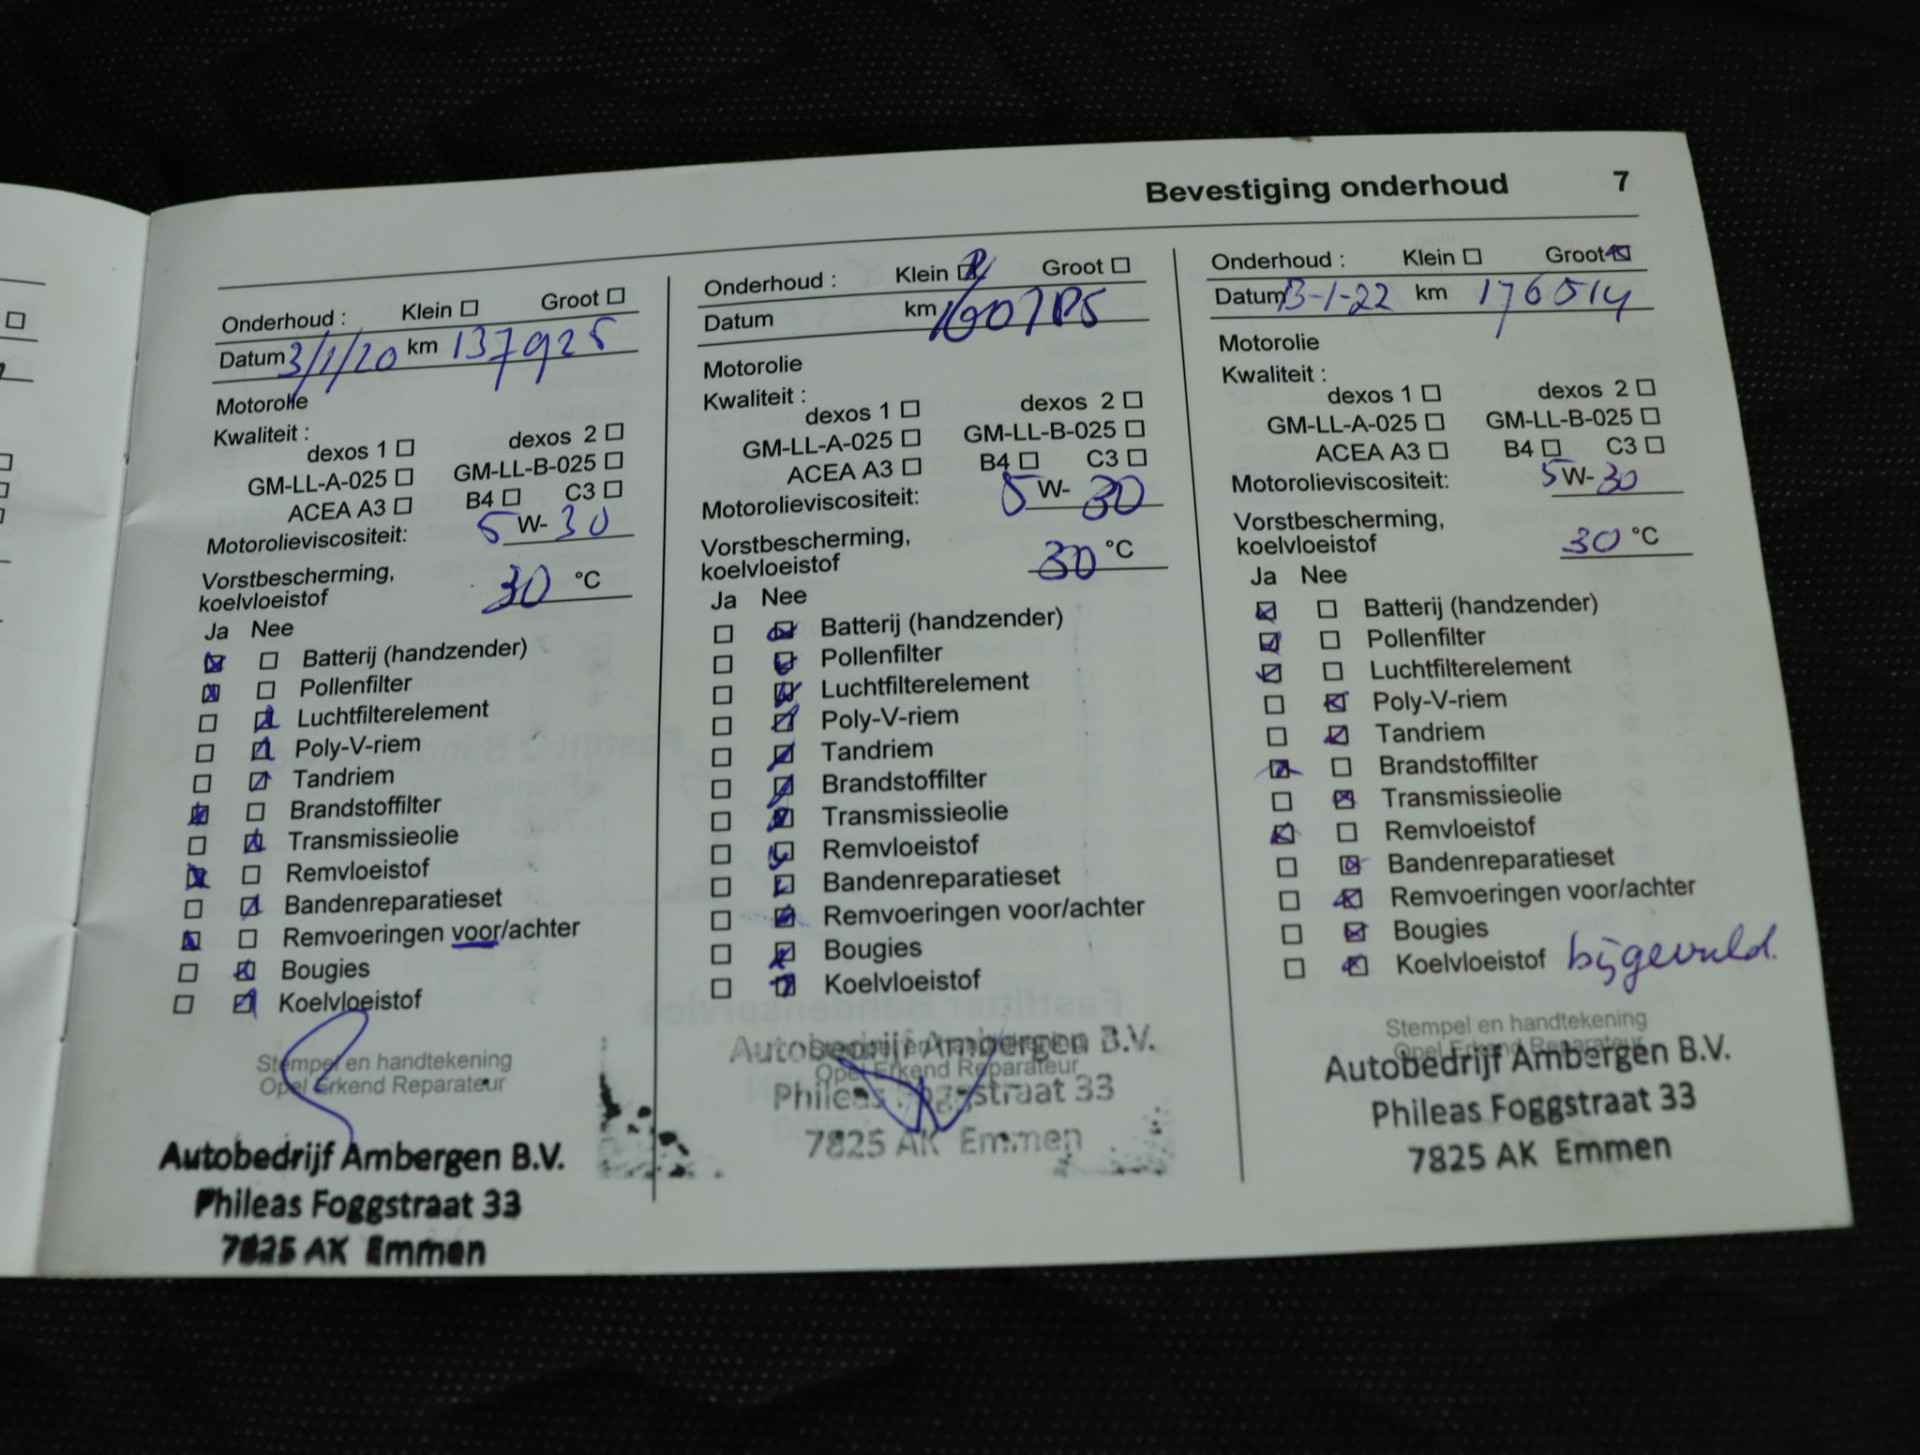 Bevestiging onderhoud 7
Onderhoud : Klein Groot
Datum 3/1/20 km 137925
Motorolie
Kwaliteit :
dexos 1 dexos 2
GM-LL-A-025 GM-LL-B-025
ACEA A3 B4 C3
Motorolieviscositeit: 5 W- 30
Vorstbescherming,
koelvloeistof 30 °C
Ja Nee
Batterij (handzender)
Pollenfilter
Luchtfilterelement
Poly-V-riem
Tandriem
Brandstoffilter
Transmissieolie
Remvloeistof
Bandenreparatieset
Remvoeringen voor/achter
Bougies
Koelvloeistof
Stempel en handtekening
Opel Erkend Reparateur
Autobedrijf Ambergen B.V.
Phileas Foggstraat 33
7825 AK Emmen
Onderhoud : Klein Groot
Datum km
Motorolie
Kwaliteit :
dexos 1 dexos 2
GM-LL-A-025 GM-LL-B-025
ACEA A3 B4 C3
Motorolieviscositeit: 5 W- 30
Vorstbescherming,
koelvloeistof 30 °C
Ja Nee
Batterij (handzender)
Pollenfilter
Luchtfilterelement
Poly-V-riem
Tandriem
Brandstoffilter
Transmissieolie
Remvloeistof
Bandenreparatieset
Remvoeringen voor/achter
Bougies
Koelvloeistof
Autobedrijf Ambergen B.V.
Opel Erkend Reparateur
Phileas Foggstraat 33
7825 AK Emmen
Onderhoud : Klein Groot
Datum 13-1-22 km 176514
Motorolie
Kwaliteit :
dexos 1 dexos 2
GM-LL-A-025 GM-LL-B-025
ACEA A3 B4 C3
Motorolieviscositeit: 5 W- 30
Vorstbescherming,
koelvloeistof 30 °C
Ja Nee
Batterij (handzender)
Pollenfilter
Luchtfilterelement
Poly-V-riem
Tandriem
Brandstoffilter
Transmissieolie
Remvloeistof
Bandenreparatieset
Remvoeringen voor/achter
Bougies
Koelvloeistof bijgevuld.
Stempel en handtekening
Opel Erkend Reparateur
Autobedrijf Ambergen B.V.
Phileas Foggstraat 33
7825 AK Emmen